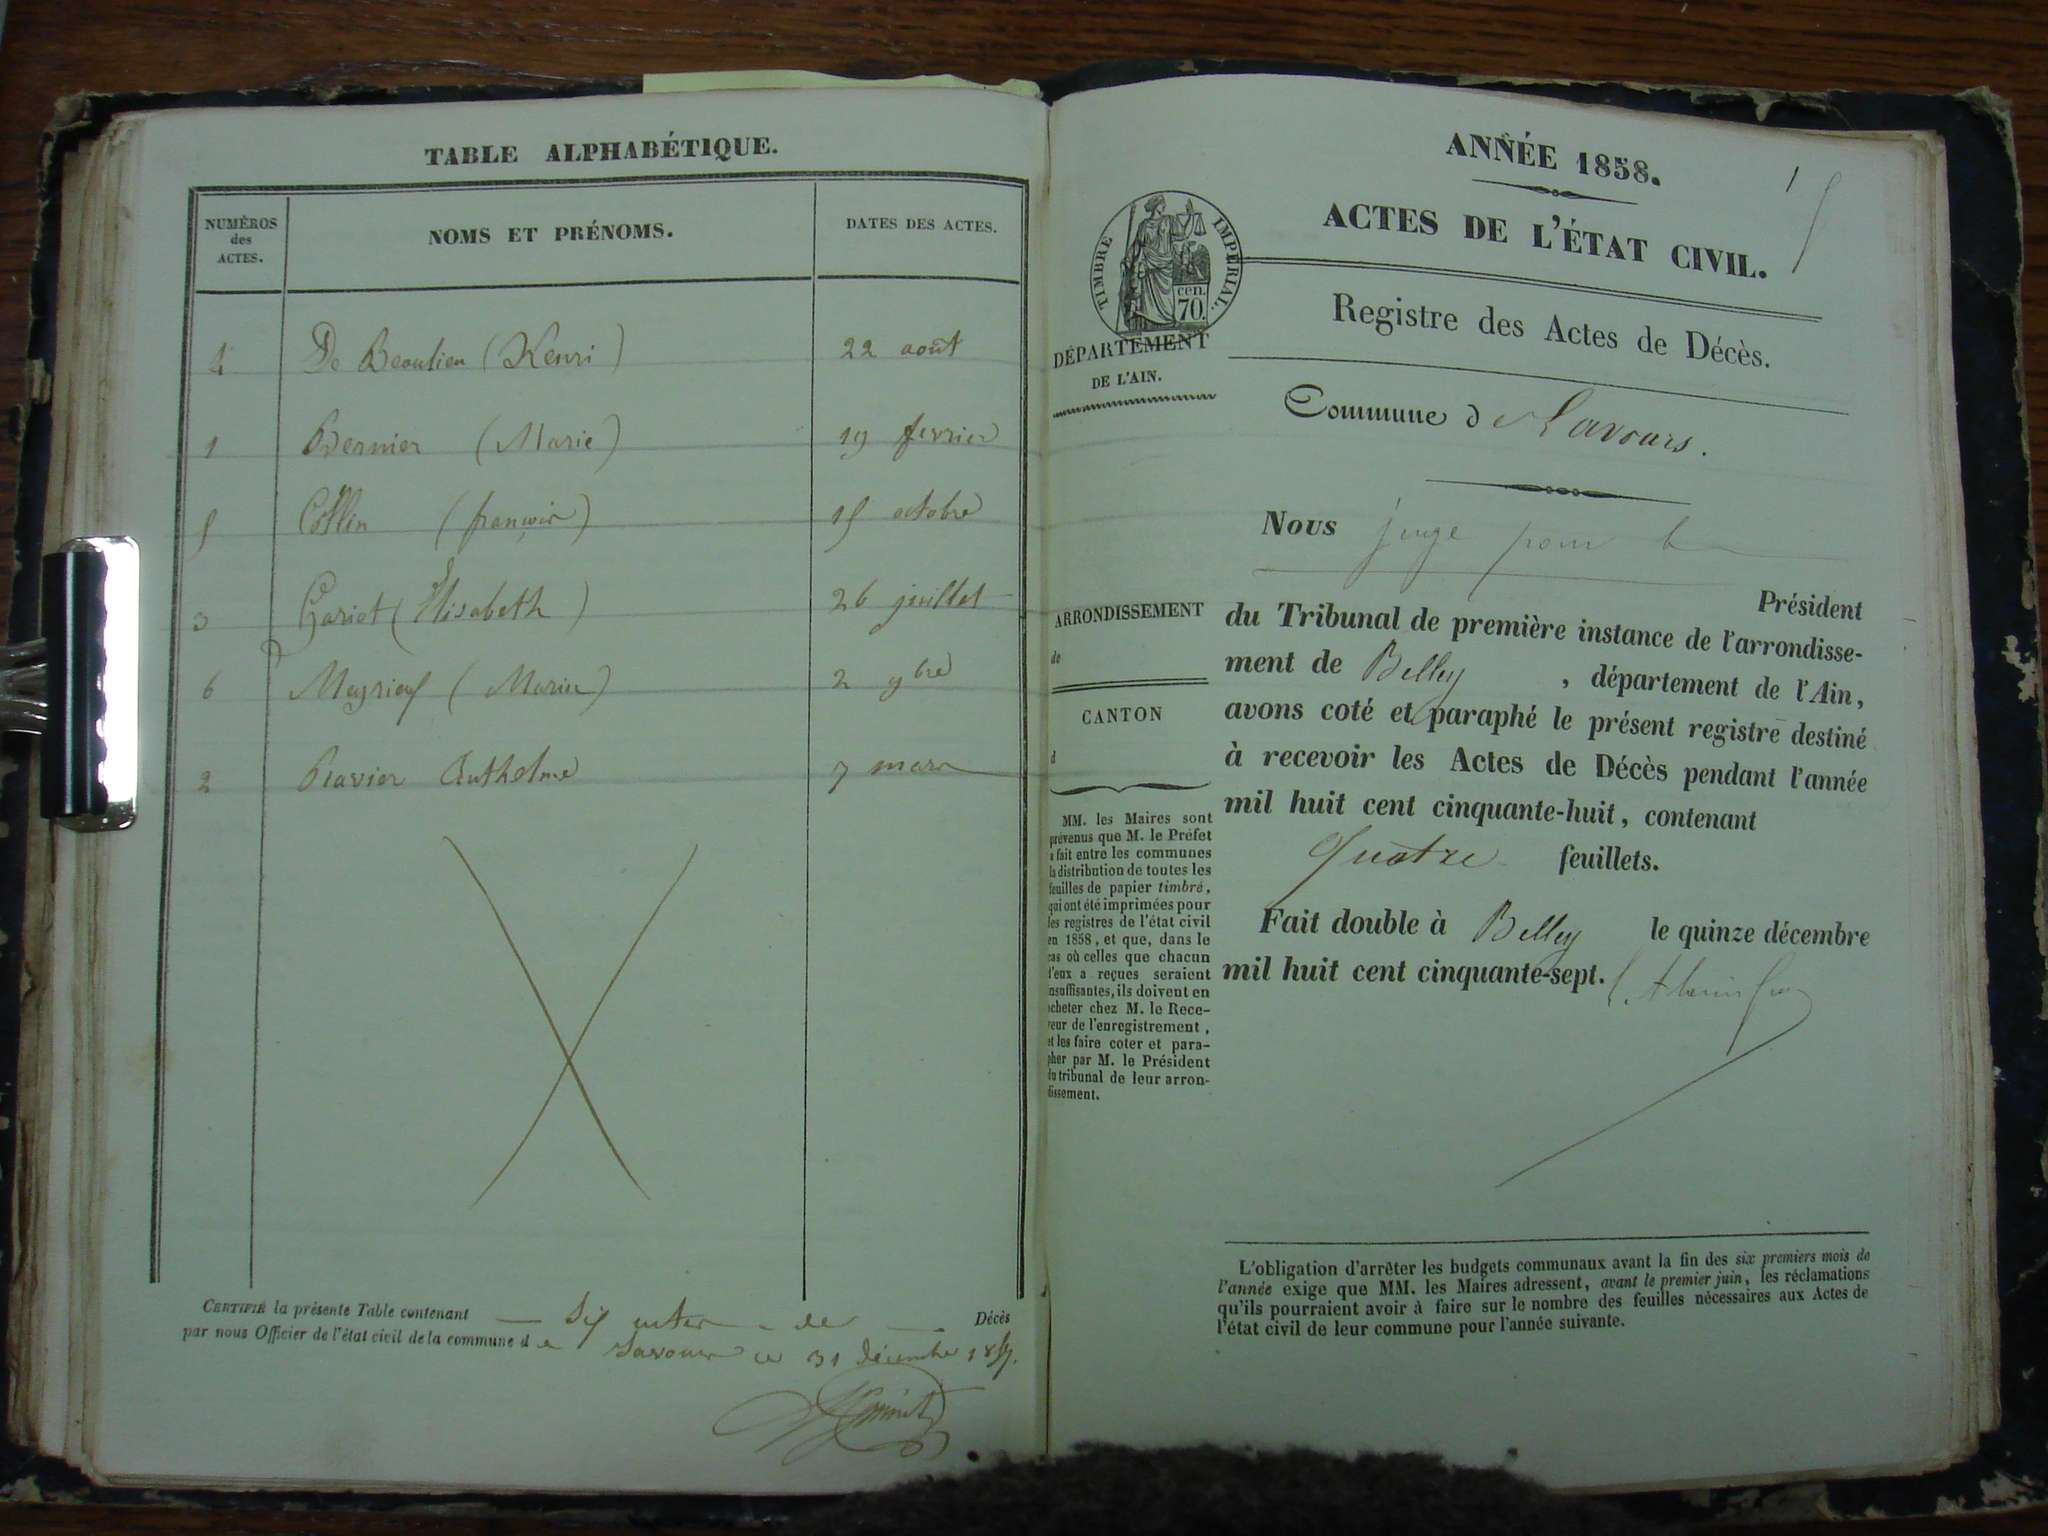 TABLE ALPHABÉTIQUE.
NUMÉROS des ACTES.
NOMS ET PRÉNOMS.
DATES DES ACTES.
4 De Beaulieu (Henri) 22 août
1 Bernier (Marie) 19 fevrier
5 Collin (françois) 15 octobre
3 Gariot (Élisabeth) 26 juillet
6 Meyrieuf (Marie) 2 9bre
2 Ravier Anthelme 7 mars
CERTIFIÉ la présente Table contenant six actes de Décès
par nous Officier de l'état civil de la commune de Lavours ce 31 décembre 1857.
ANNÉE 1858.
ACTES DE L'ÉTAT CIVIL.
TIMBRE IMPÉRIAL.
cen.
70.
Registre des Actes de Décès.
DÉPARTEMENT
DE L'AIN.
Commune de Lavours.
Nous juge pour le
Président
ARRONDISSEMENT
de
CANTON
d
du Tribunal de première instance de l'arrondisse-
ment de Belley, département de l'Ain,
avons coté et paraphé le présent registre destiné
à recevoir les Actes de Décès pendant l'année
mil huit cent cinquante-huit, contenant
Quatre feuillets.
Fait double à Belley le quinze décembre
mil huit cent cinquante-sept.
MM. les Maires sont
prévenus que M. le Préfet
a fait entre les communes
la distribution de toutes les
feuilles de papier timbré,
qui ont été imprimées pour
les registres de l'état civil
en 1858, et que, dans le
cas où celles que chacun
d'eux a reçues seraient
insuffisantes, ils doivent en
acheter chez M. le Rece-
veur de l'enregistrement,
et les faire coter et para-
pher par M. le Président
du tribunal de leur arron-
dissement.
L'obligation d'arrêter les budgets communaux avant la fin des six premiers mois de
l'année exige que MM. les Maires adressent, avant le premier juin, les réclamations
qu'ils pourraient avoir à faire sur le nombre des feuilles nécessaires aux Actes de
l'état civil de leur commune pour l'année suivante.